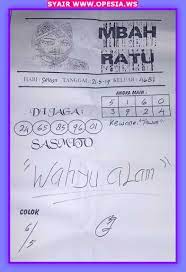 SYAIR WWW.OPESIA.WS
MBAH
RATU
HARI : TANGGAL : 21-5-19 KELUAR :
ANGKA MAIN :
5 1 6 0
3 9 2 4
DI JAGA :
24 65 85 96 01
SASMITO
"Wahyu alam"
COLOK
6/5